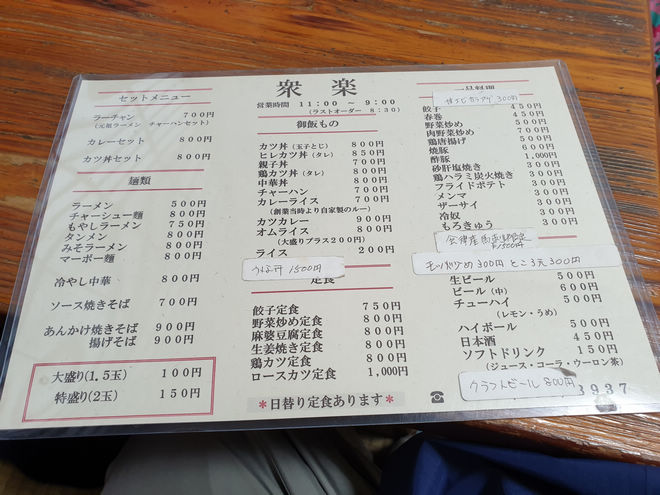 衆楽
営業時間 11:00 ～ 9:00
(ラストオーダー 8:30)
セットメニュー
ラーチャン 700円
(元祖ラーメン チャーハンセット)
カレーセット 800円
カツ丼セット 800円
麺類
ラーメン 500円
チャーシュー麺 800円
もやしラーメン 750円
タンメン 800円
みそラーメン 800円
マーボー麺 800円
冷やし中華 800円
ソース焼きそば 700円
あんかけ焼きそば 900円
揚げそば 900円
大盛り(1.5玉) 100円
特盛り(2玉) 150円
御飯もの
カツ丼(玉子とじ) 800円
ヒレカツ丼(タレ) 850円
親子丼 800円
鶏カツ丼(タレ) 800円
中華丼 800円
チャーハン 800円
カレーライス 800円
(創業当時より自家製のルー)
カツカレー 900円
オムライス 800円
(大盛りプラス200円)
ライス 200円
1500円
定食
餃子定食 750円
野菜炒め定食 800円
麻婆豆腐定食 800円
生姜焼き定食 800円
鶏カツ定食 800円
ロースカツ定食 1,000円
＊日替り定食あります＊
一品料理
300円
餃子 450円
春巻 450円
野菜炒め 500円
肉野菜炒め 700円
鶏唐揚げ
焼豚
酢豚 1,000円
砂肝塩焼き
鶏ハラミ炭火焼き
フライドポテト
メンマ
ザーサイ
冷奴
もろきゅう
300円 ところ天300円
生ビール 500円
ビール(中) 600円
チューハイ 500円
(レモン・うめ)
ハイボール 500円
日本酒 450円
ソフトドリンク 150円
(ジュース・コーラ・ウーロン茶)
クラフトビール 800円
☎ 3937